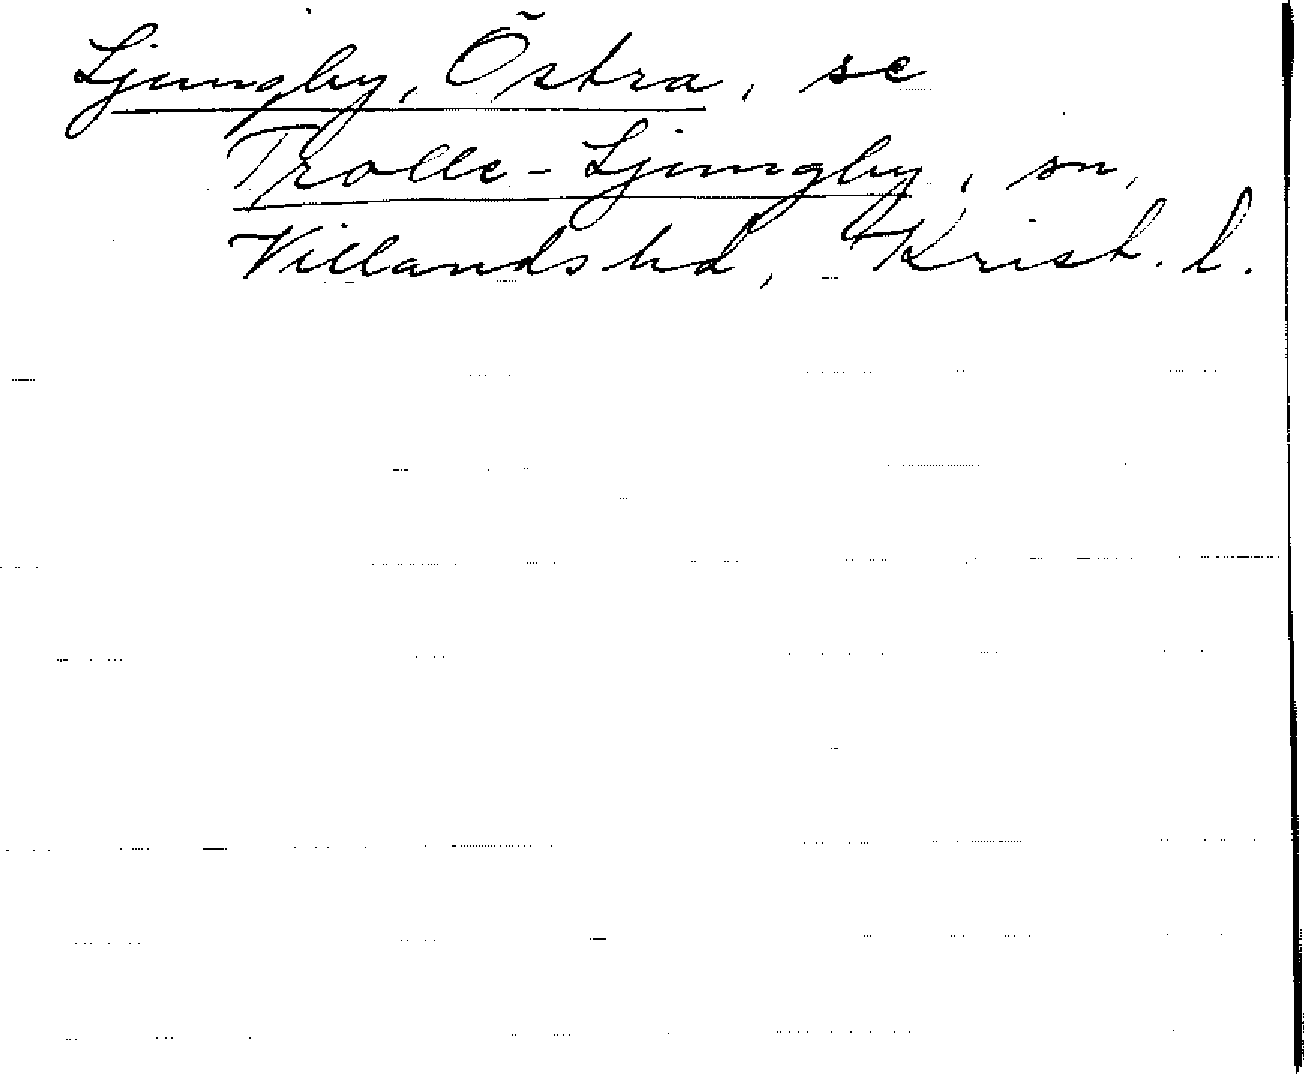 Ljungby, Östra, se
Trolle-Ljungby, sn,
Villands hd, Krist. l.